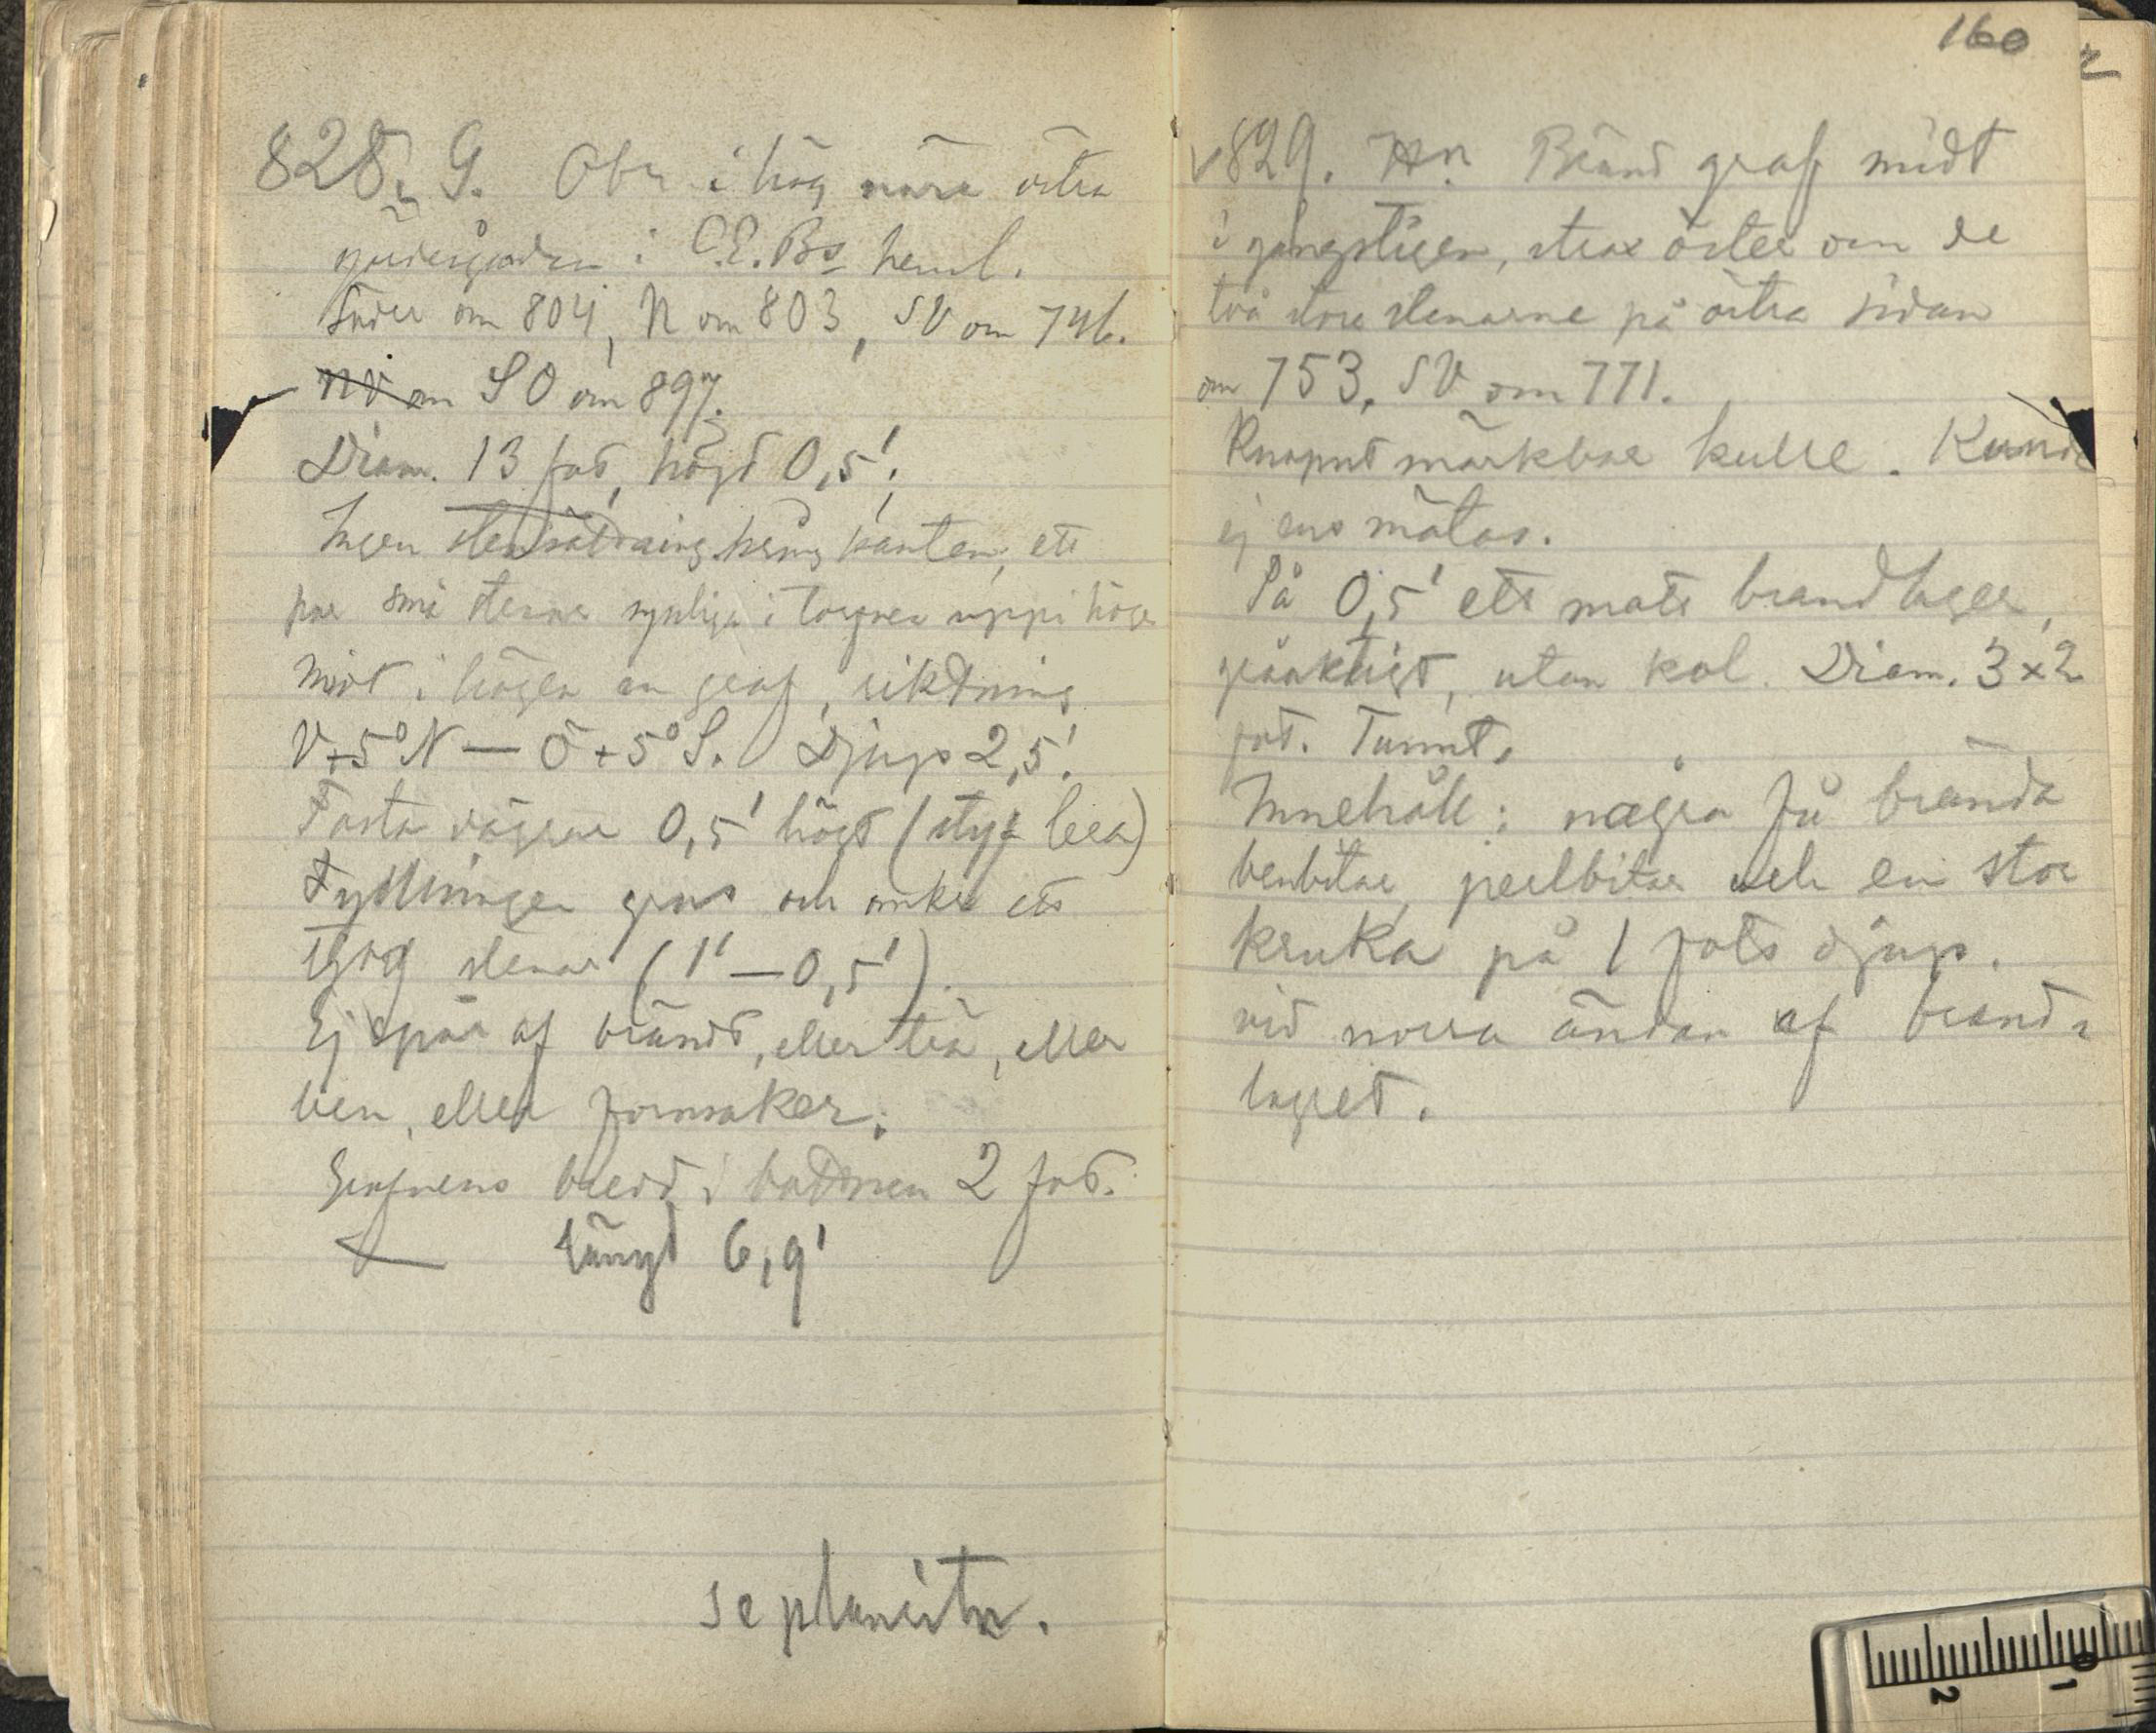 828. G. Obr. i hög nära östra
gärdesgården i C.E. Bs heml.
Söder om 804, N om 803, SV om 746.
NV om SO om 897.
Diam. 13 fot, höjd 0,5'.
Ingen stensättning kring kanten, ett
par små stenar synliga i torfven uppi högen
Midt i högen en graf, riktning
V+5°N — Ö+5°S. Djup 2,5'.
Fasta väggar 0,5' högt (styf lera)
Fyllningen grus och omkr ett
tjog stenar (1' — 0,5').
Ej spår af brändt, eller trä, eller
ben, eller fornsaker.
Grafvens bredd i bottnen 2 fot.
längd 6,9'
se plansita.
160
v 829. Hn. Bränd graf midt
i gångstigen, strax öster om de
två stora stenarne på östra sidan
om 753, SV om 771.
Knapnt märkbar kulle. Kunde
ej ens mätas.
På 0,5' ett matt brandlager,
gråaktigt, utan kol. Diam. 3 x 2
fot. Tunnt.
Innehåll: några få brända
benbitar, perlbitar och en stor
kruka på 1 fots djup.
vid norra ändan af brand-
lagret.